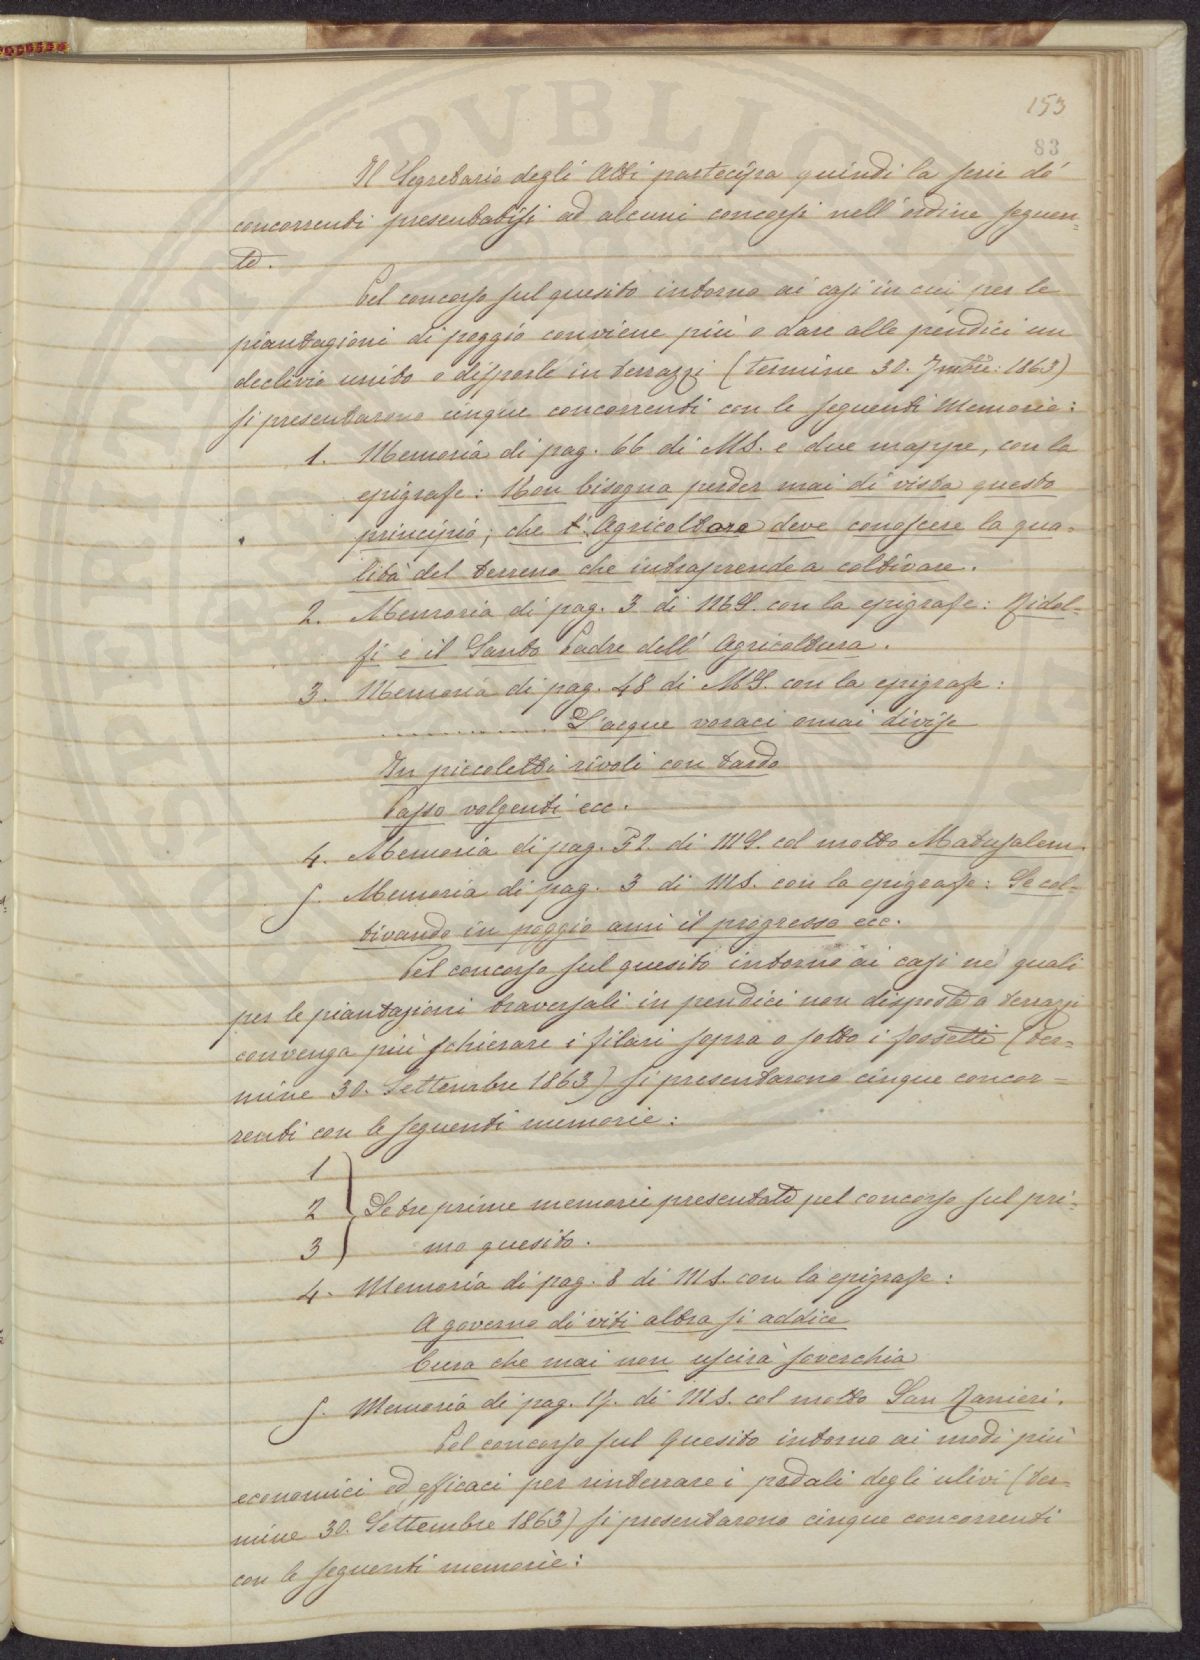 153
83
Il Segretario degli Atti partecipa quindi la serie dé
concorrenti presentatisi ad alcuni concorsi nell'ordine seguen=
te.
Pel concorso sul quesito intorno ai casi in cui per le
piantagioni di poggio conviene più o dare alle pendici un
declivio unito o disporle in terrazzi (termine 30. 7mbre: 1863)
si presentarono cinque concorrenti con le seguenti Memorie:
1. Memoria di pag. 66 di MS. e due mappe, con la
epigrafe: Non bisogna perder mai di vista questo
principio; che l'Agricoltore deve conoscere la qua=
lità del terreno che intraprende a coltivare.
2. Memoria di pag. 3 di MS. con la epigrafe: Ridol=
fi è il Santo Padre dell'Agricoltura.
3. Memoria di pag. 48 di MS. con la epigrafe:
............ L'acque voraci omai divise
In piccoletti rivoli con tardo
Passo volgenti ecc.
4. Memoria di pag. 52. di MS. col motto Matusalem.
5. Memoria di pag. 3 di MS. con la epigrafe: Se col=
tivando in poggio ami il progresso ecc.
Pel concorso sul quesito intorno ai casi né quali
per le piantazioni traversali in pendici non disposte a terrazzi
convenga più schierare i filari sopra o sotto i fossetti (ter=
mine 30. Settembre 1863) si presentarono cinque concor=
renti con le seguenti memorie:
1
2 Le tre prime memorie presentate pel concorso sul pri=
3 mo quesito.
4. Memoria di pag. 8 di MS. con la epigrafe:
A governo di viti altra si addice
Cura che mai non uscirà soverchia
5. Memoria di pag. 17. di MS. col motto San Ranieri.
Pel concorso sul Quesito intorno ai modi più
economici ed efficaci per rinterrare i pedali degli ulivi (ter=
mine 30. Settembre 1863) si presentarono cinque concorrenti
con le seguenti memorie: